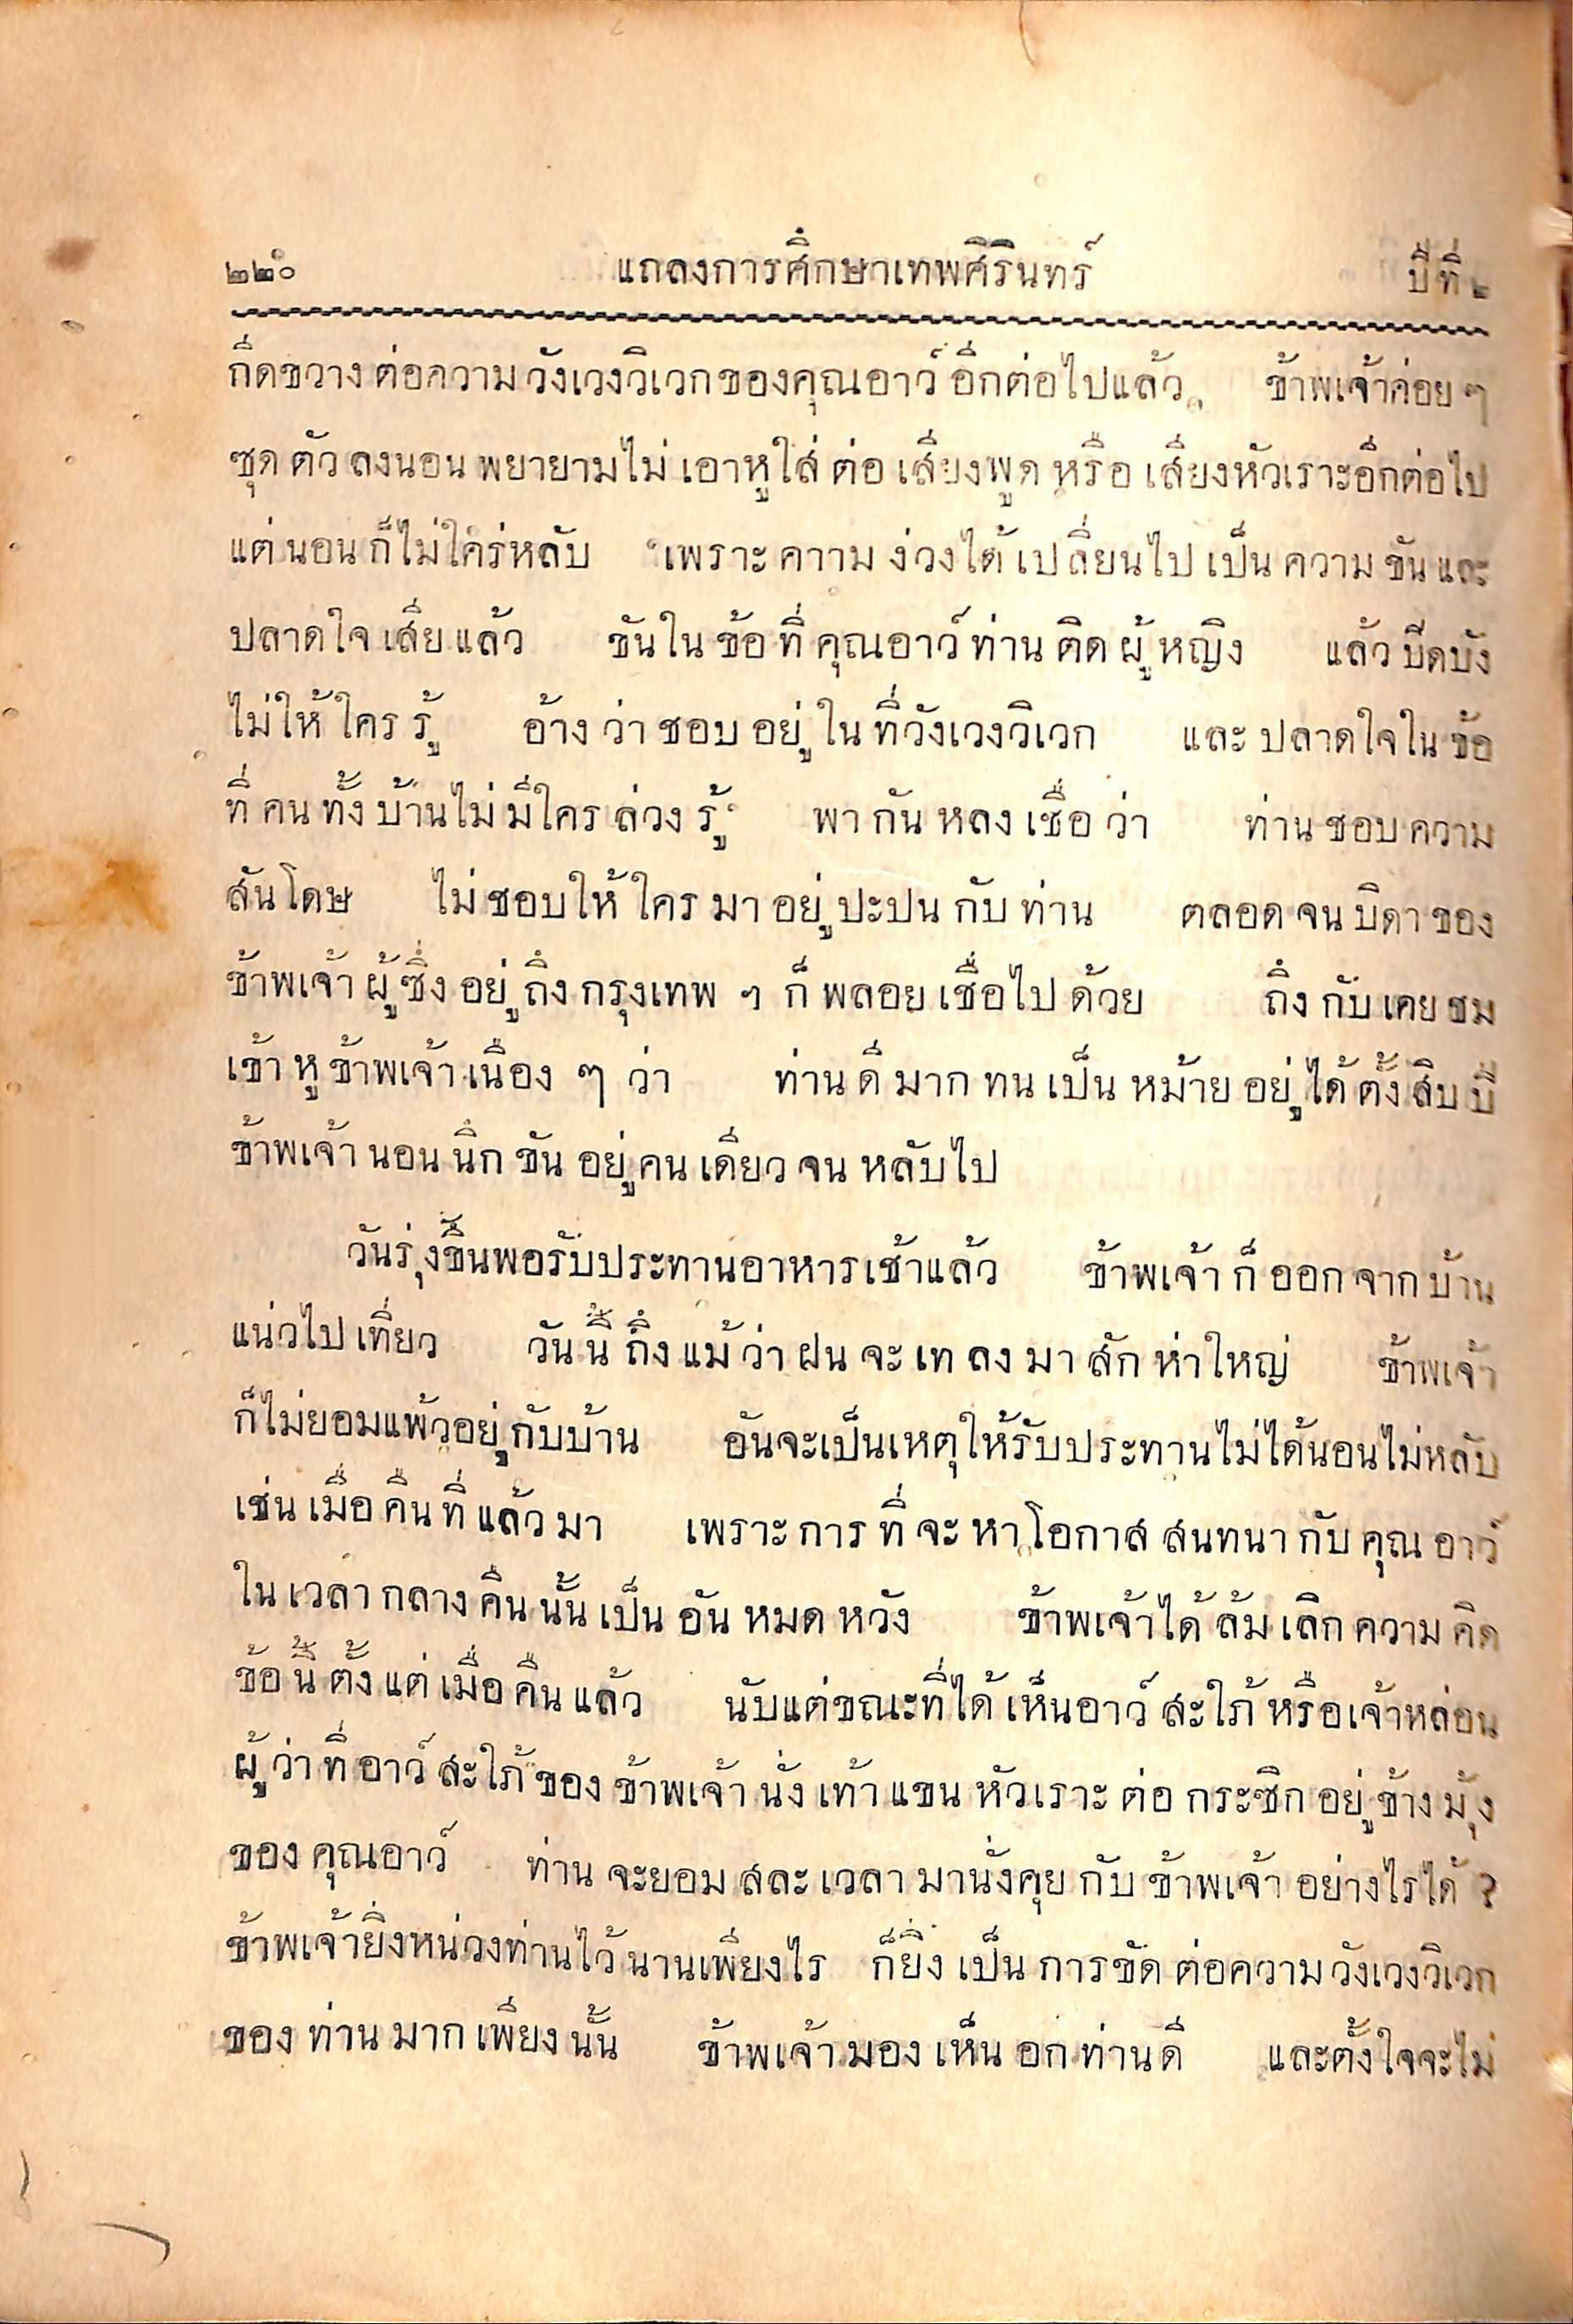 ๒๒๐ แถลงการศึกษาเทพศิรินทร์ ปีที่ ๒
กีดขวางต่อความวังเวงวิเวกของคุณอาว์อีกต่อไปแล้ว ข้าพเจ้าค่อย ๆ
ซุดตัวลงนอนพยายามไม่เอาหูใส่ต่อเสียงพูดหรือเสียงหัวเราะอีกต่อไป
แต่นอนก็ไม่ใคร่หลับ เพราะคาามง่วงได้เปลี่ยนไปเป็นความขันและ
ปลาดใจเสียแล้ว ขันในข้อที่คุณอาว์ท่านติดผู้หญิง แล้วปีดบัง
ไม่ให้ใครรู้ อ้างว่าชอบอยู่ในที่วังเวงวิเวก และปลาดใจในข้อ
ที่คนทั้งบ้านไม่มีใครล่วงรู้ พากันหลงเชื่อว่า ท่านชอบความ
สันโดษ ไม่ชอบให้ใครมาอยู่ปะปนกับท่าน ตลอดจนบิดาของ
ข้าพเจ้าผู้ซึ่งอยู่ถึงกรุงเทพ ฯ ก็พลอยเชื่อไปด้วย ถึงกับเคยชม
เข้าหูข้าพเจ้าเนือง ๆ ว่า ท่านดีมากทนเป็นหม้ายอยู่ได้ตั้งสิบปี
ข้าพเจ้านอนนึกขันอยู่คนเดียวจนหลับไป
วันรุ่งขึ้นพอรับประทานอาหารเช้าแล้ว ข้าพเจ้าก็ออกจากบ้าน
แน่วไปเที่ยว วันนี้ถึงแม้ว่าฝนจะเทลงมาสักห่าใหญ่ ข้าพเจ้า
ก็ไม่ยอมแพ้วอยู่กับบ้าน อันจะเป็นเหตุให้รับประทานไม่ได้นอนไม่หลับ
เช่นเมื่อคืนที่แล้วมา เพราะการที่จะหาโอกาสสนทนากับคุณอาว์
ในเวลากลางคืนนั้นเป็นอันหมดหวัง ข้าพเจ้าได้ล้มเลิกความคิด
ข้อนี้ตั้งแต่เมื่อคืนแล้ว นับแต่ขณะที่ได้เห็นอาว์สะใภ้หรือเจ้าหล่อน
ผู้ว่าที่อาว์สะใภ้ของข้าพเจ้านั่งเท้าแขนหัวเราะต่อกระซิกอยู่ข้างมุ้ง
ของคุณอาว์ ท่านจะยอมสละเวลามานั่งคุยกับข้าพเจ้าอย่างไรได้ ?
ข้าพเจ้ายิ่งหน่วงท่านไว้นานเพียงไร ก็ยิ่งเป็นการขัดต่อความวังเวงวิเวก
ของท่านมากเพียงนั้น ข้าพเจ้ามองเห็นอกท่านดี และตั้งใจจะไม่